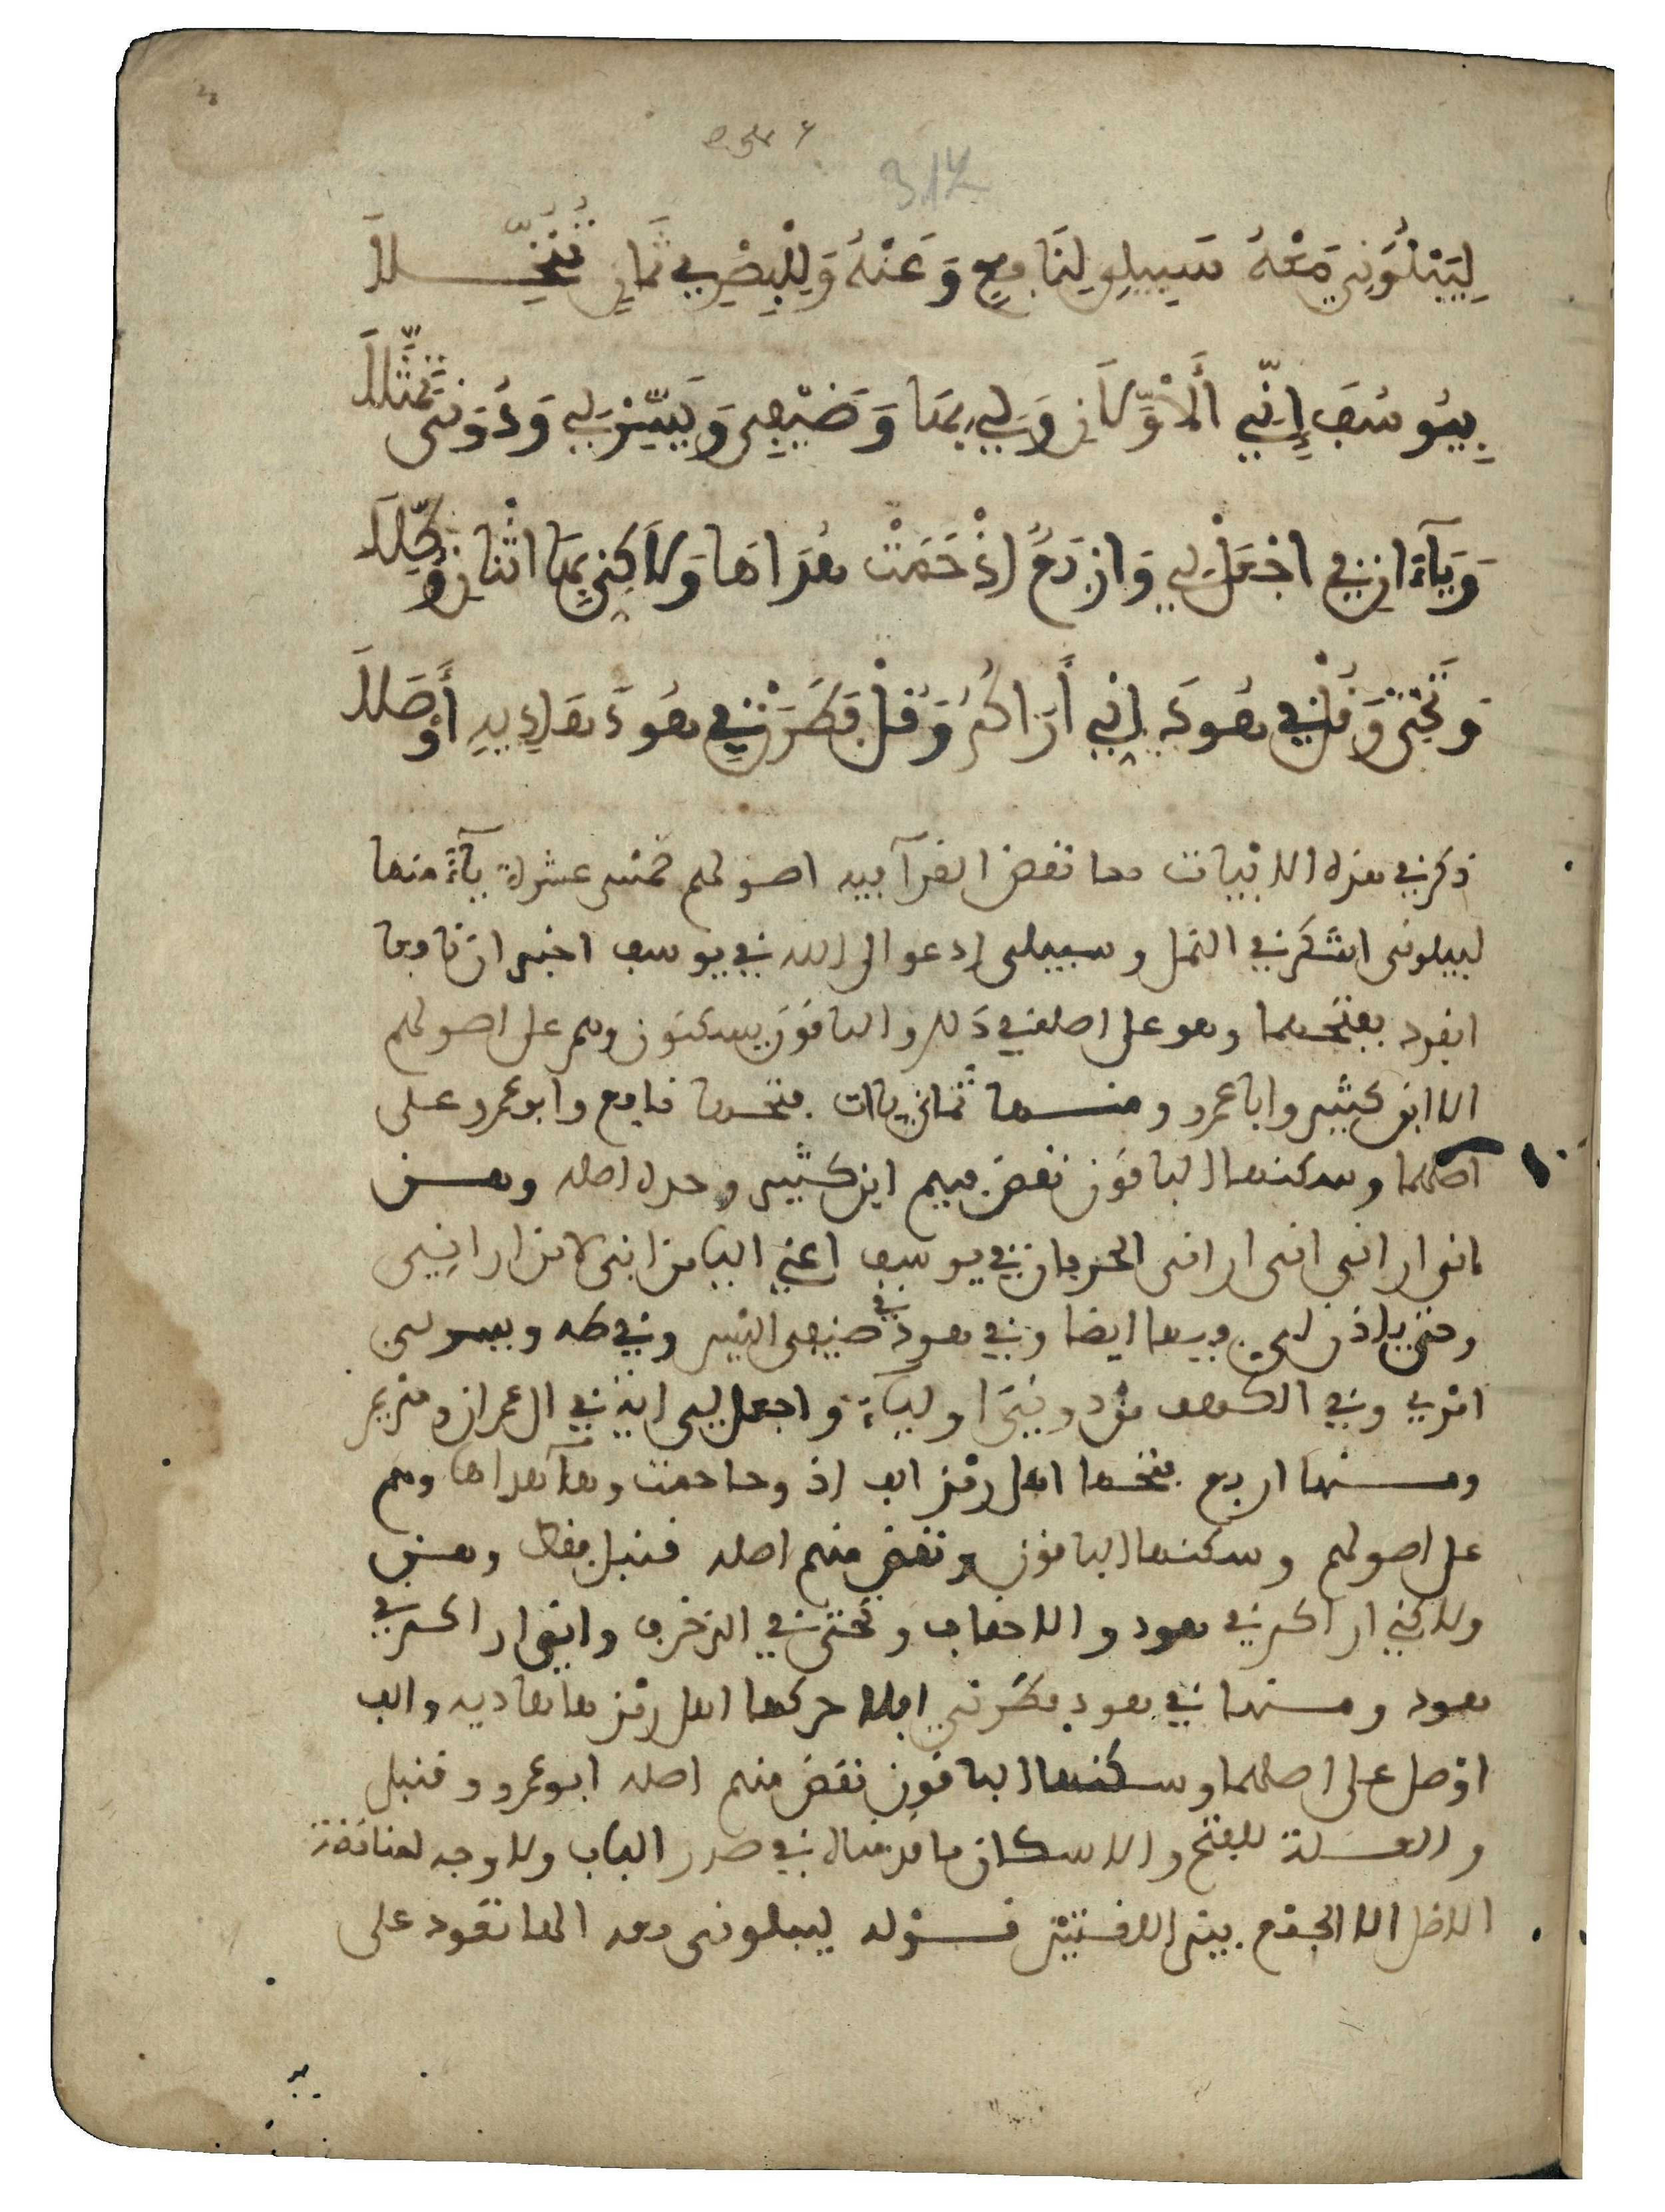 لِيَبْلُوَنِي مَعْهُ سَبِيلِي لِنَافِعٍ وَعَنْهُ وَلِلْبَصْرِي ثَمَانٍ تُنُخِّلَا
بِيُوسُفَ إِنِّي الْأَوَّلَانِ وَلِي بِهَا وَضَيْفِي وَيَسِّرْ لِي وَدُونِي تَمَثَّلَا
وَيَاءَانِ فِي اجْعَلْ لِي وَأَرْبَعٌ اذْ حَمَتْ هُدَاهَا وَلَاكِنِّي بِهَا اثْنَانِ وُكِّلَا
وَتَحْتِي وَقُلْ فِي هُودَ إِنِّي أَرَاكُمُ وَقُلْ فَطَرَنْ فِي هُودَ هَادِيهِ أَوْصَلَا
ذكر في هذه الابيات مما نقض القرا فيه اصولهم خمس عشرة ياءً منها
ليبلوني اشكر في النمل وسبيلي ادعوا الى الله في يوسف اخبر ان نافعا
انفرد بفتحهما وهو على اصله في ذلك والباقون يسكنون وهم على اصولهم
الا ابن كثير وابا عمرو ومنها ثماني ياات فتحها نافع وابو عمرو على
اصلهما وسكنها الباقون نقض فيهم ابن كثير وحده اصله وهن
اني اراني اني اراني الحرفان في يوسف اعني الياء من اني لا من اراني
وحتى ياذن لي فيها ايضا وفي هود في ضيفي اليس وفي طه ويسر لي
امري وفي الكهف من دوني اولياء واجعل لي اية في ال عمران ومريم
ومنها اربع فتحها اهل رمز الف اذ وحا حمت وها هداها وهم
على اصولهم وسكنها الباقون ونقض منهم اصله قنبل فقط وهن
ولاكني اراكم في هود والاحقاف وتحتي في الزخرف واني اراكم في
هود ومنها في هود فطرني افلا حركها اهل رمز ها هاديه والف
اوصل على اصلهما وسكنها الباقون نقض منهم اصله ابو عمرو وقنبل
والعلة للفتح والاسكان ما قد قال في صدر الباب ولا وجه لمناقضة
الاصل الا الجمع بين اللغتين قوله ليبلوني معه الها تعود على